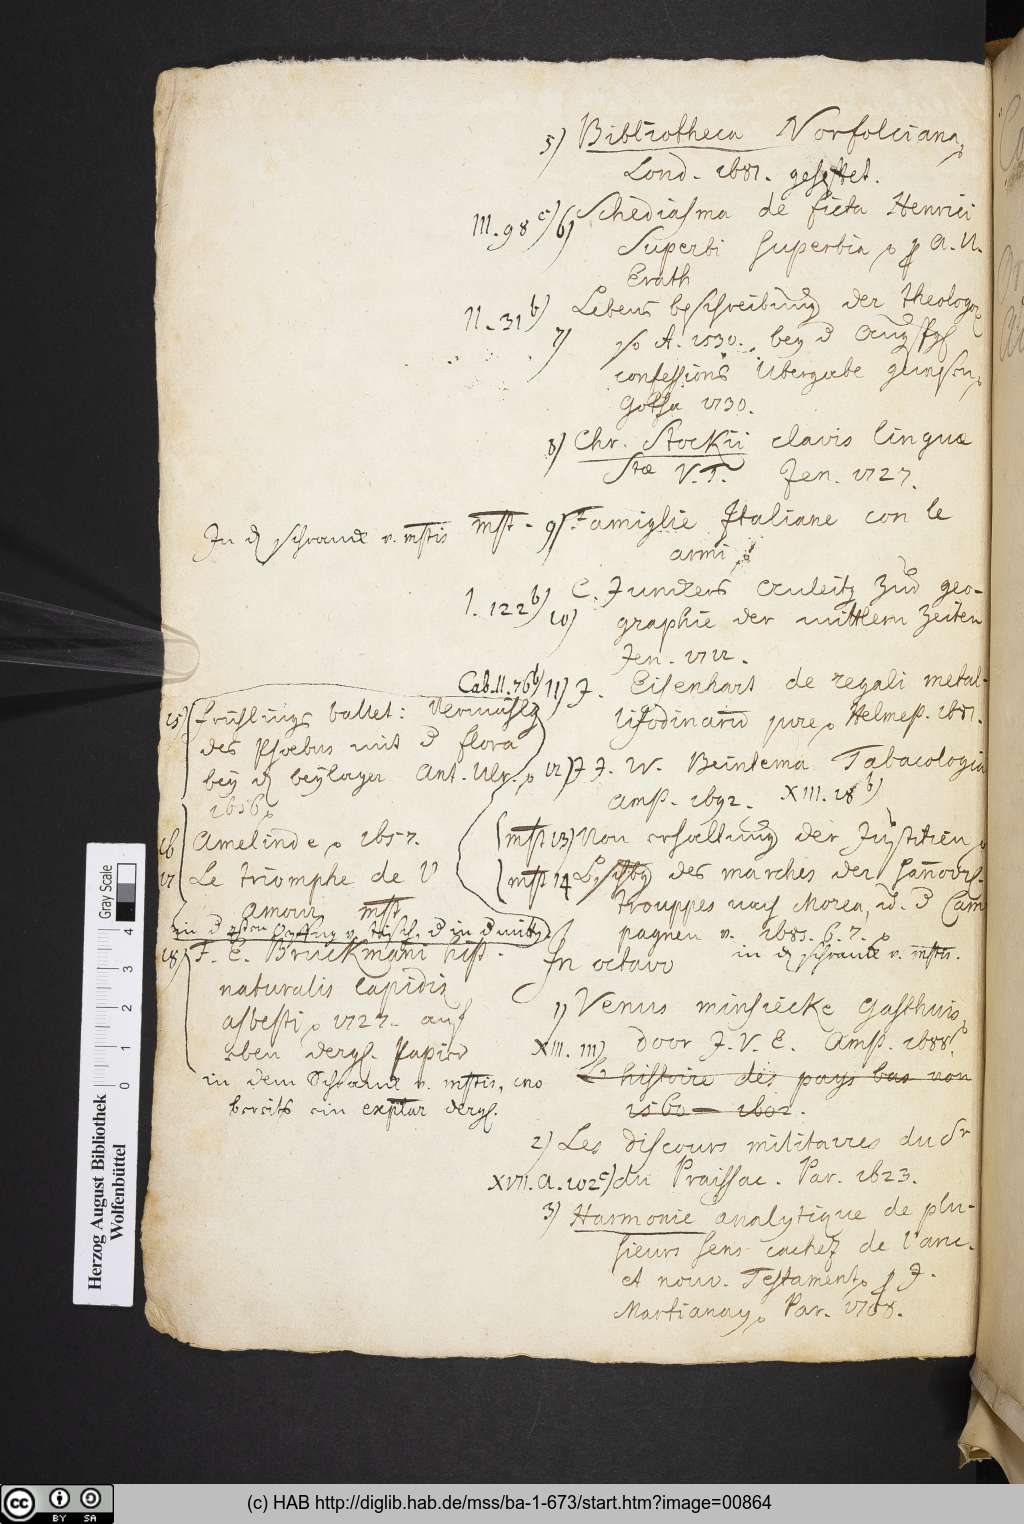 5) Bibliotheca Norfolciana,
Lond. 1681. geheftet.
III. 98 c) 6) Schediasma de ficta Henrici
Superbi superbia, A. U.
Erath
II. 31 b) Lebens beschreibung der theologor
7) so A. 1530. bey d Augspg
confessions Ubergabe gewesen,
Gotha 1730.
8) Chr. Stockii clavis linguæ
Stæ V. T. Jen. 1727.
In d schranck v. msstis msst. 9) Famiglie Italiane con le
armi,
I. 122 b) C. Junckers Anleitg zur geo-
10) graphie der mittlern Zeiten
Jen. 1712.
Cab. II. 76 b) 11) J. Eisenhart de regali metal-
lifodinarū jure, Helmest. 1681.
15) Frühlings ballet: Vermählg
des Phoebus mit d flora
bey d beylager Ant. Ulr.
1656,
12) J. J. W. Beintema Tabacologia
Amst. 1692. XIII. 18 b)
16 Amelinde, 1657.
msst 13) Von erhaltung der Justitien
17 Le triomphe de l'
amour msst
msst 14 des marches der Hañovrs.
trouppes nach Morea, Cam
pagnen v. 1685. 6. 7.
in d schranck v. msstis.
18) F. E. Brückmañi hist.
naturalis lapidis
asbesti, 1727. auf
eben dergl. Papier
in dem Schranck v. msstis, wo
bereits ein explar dergl.
In octavo
1) Venus minsiecke Gasthuis,
XIII. 111) door J. V. E. Amst. 1688.
L'histoire des pays bas von
1560 — 1602.
2) Les discours militaires du Sr
XVII. A. 102 c) du Praissac. Par. 1623.
3) Harmonie analytique de plu-
sieurs sens cachez de l'anc.
et nouv. Testament, J.
Martianay, Par. 1708.
Herzog August Bibliothek
Wolfenbüttel
Gray Scale
0 1 2 3 4
cc BY SA
(c) HAB http://diglib.hab.de/mss/ba-1-673/start.htm?image=00864